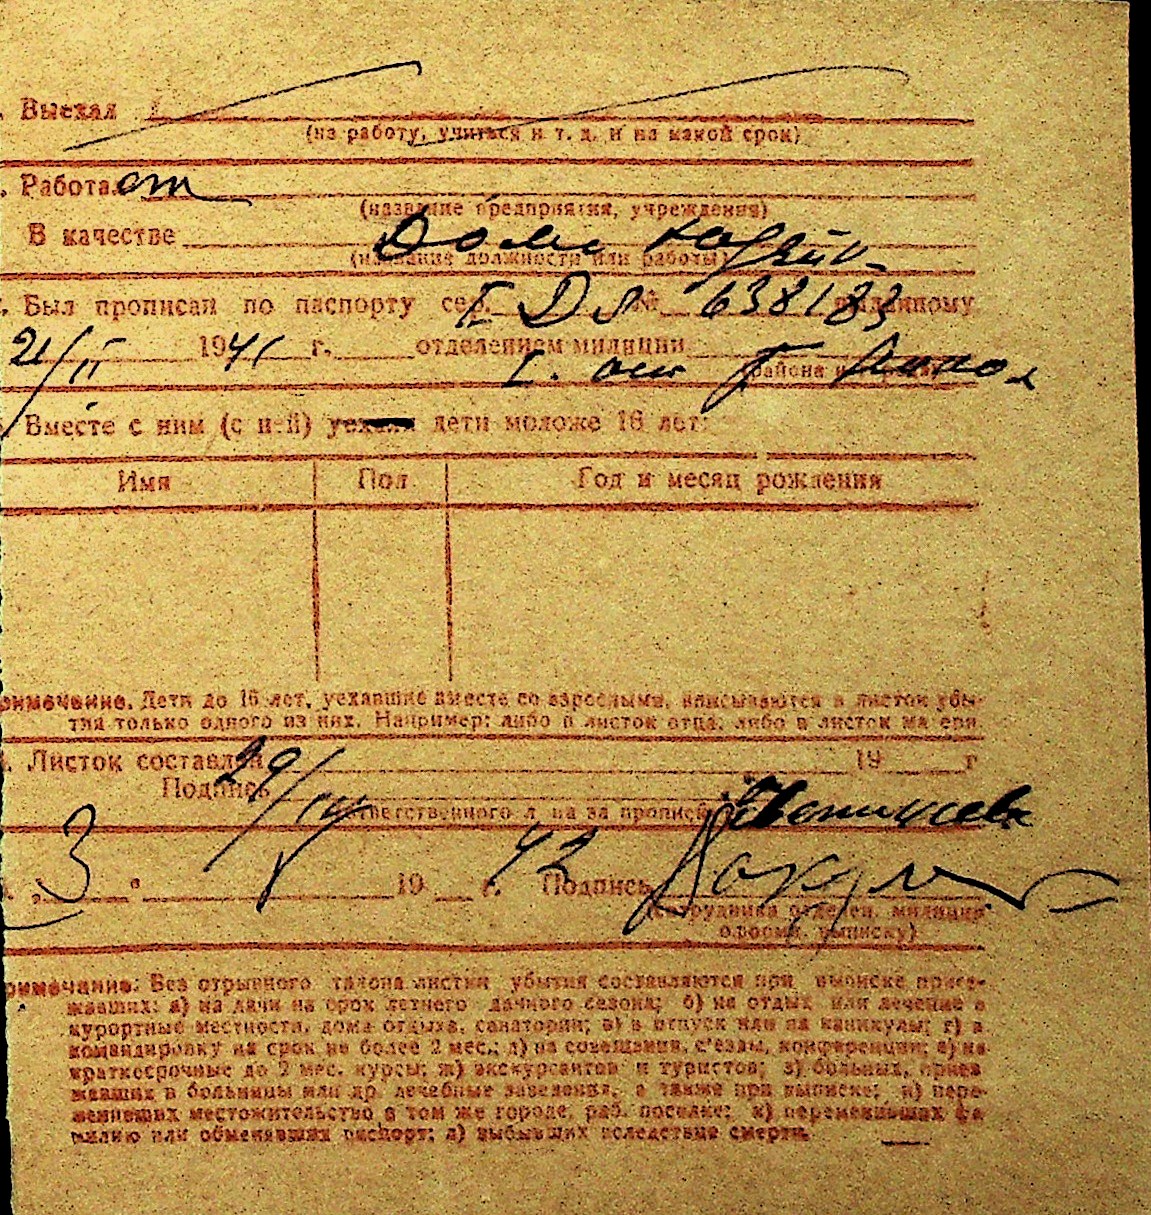 Выехал
(на работу, учиться и т. д. и на какой срок)
Работал
(название предприятия, учреждения)
В качестве Дома
(название должности или работы)
Был прописан по паспорту сер. № 638183 выданному
21/II 1941 г. отделением милиции
I. района
Вместе с ним (с ней) дети моложе 16 лет:
Имя Пол Год и месяц рождения
Примечание. Дети до 16 лет, уехавшие вместе со взрослыми, вписываются в листок убы-
тия только одного из них. Например: либо в листок отца, либо в листок матери.
Листок составлен 29/IV 19 г
Подпись
ответственного лица за прописку
3 V 1942 г. Подпись
(сотрудника отделен. милиции
оформ. выписку)
Примечание: Без отрывного талона листки убытия составляются при выписке приез-
жавших: а) на дачи на срок летнего дачного сезона; б) на отдых или лечение в
курортные местности, дома отдыха, санатории; в) в отпуск или на каникулы; г) в
командировку на срок не более 2 мес.; д) на совещания, с'езды, конференции; е) на
краткосрочные до 2 мес. курсы; ж) экскурсантов и туристов; з) больных, приез
жавших в больницы или др. лечебные заведения, а также при выписке; и) пере-
менивших местожительство в том же городе, раб. поселке; к) переменивших фа
милию или обменявших паспорт; л) выбывших вследствие смерти.